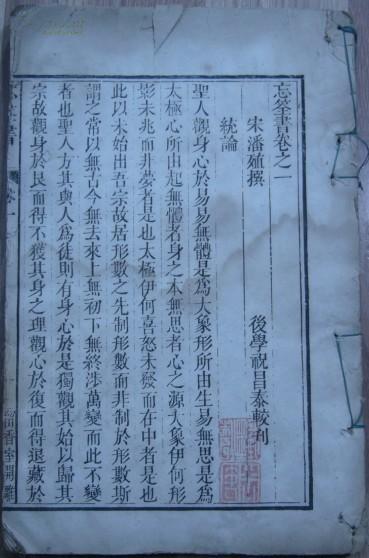 忘筌書卷之一
宋潘殖撰
後學祝昌泰較刋
統論
聖人觀身心於易易無體是爲大象形所由生易無思是爲
太極心所由起無體者身之本無思者心之源大象伊何形
影未兆而非夢者是也太極伊何喜怒未發而在中者是也
此以未始出吾宗故居形數之先制形數而非制於形數斯
謂之常以無古今無去來上無初下無終涉萬變而此不變
者也聖人方其與人爲徒則有身心於是獨觀其始以歸其
宗故觀身於艮而得不獲其身之理觀心於復而得退藏於
卷一
留香室開雕